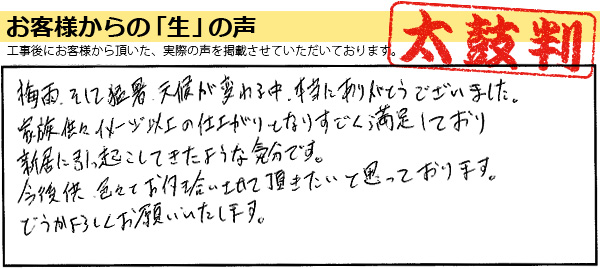 お客様からの「生」の声
工事後にお客様から頂いた、実際の声を掲載させていただいております。
太鼓判
梅雨、そして猛暑、天候が変わる中、本当にありがとうございました。
家族供々イメージ以上の仕上がりとなりすごく満足しており
新居に引っ起こしてきたような気分です。
今後供、色々とお付き合いさせて頂きたいと思っております。
どうかよろしくお願いいたします。